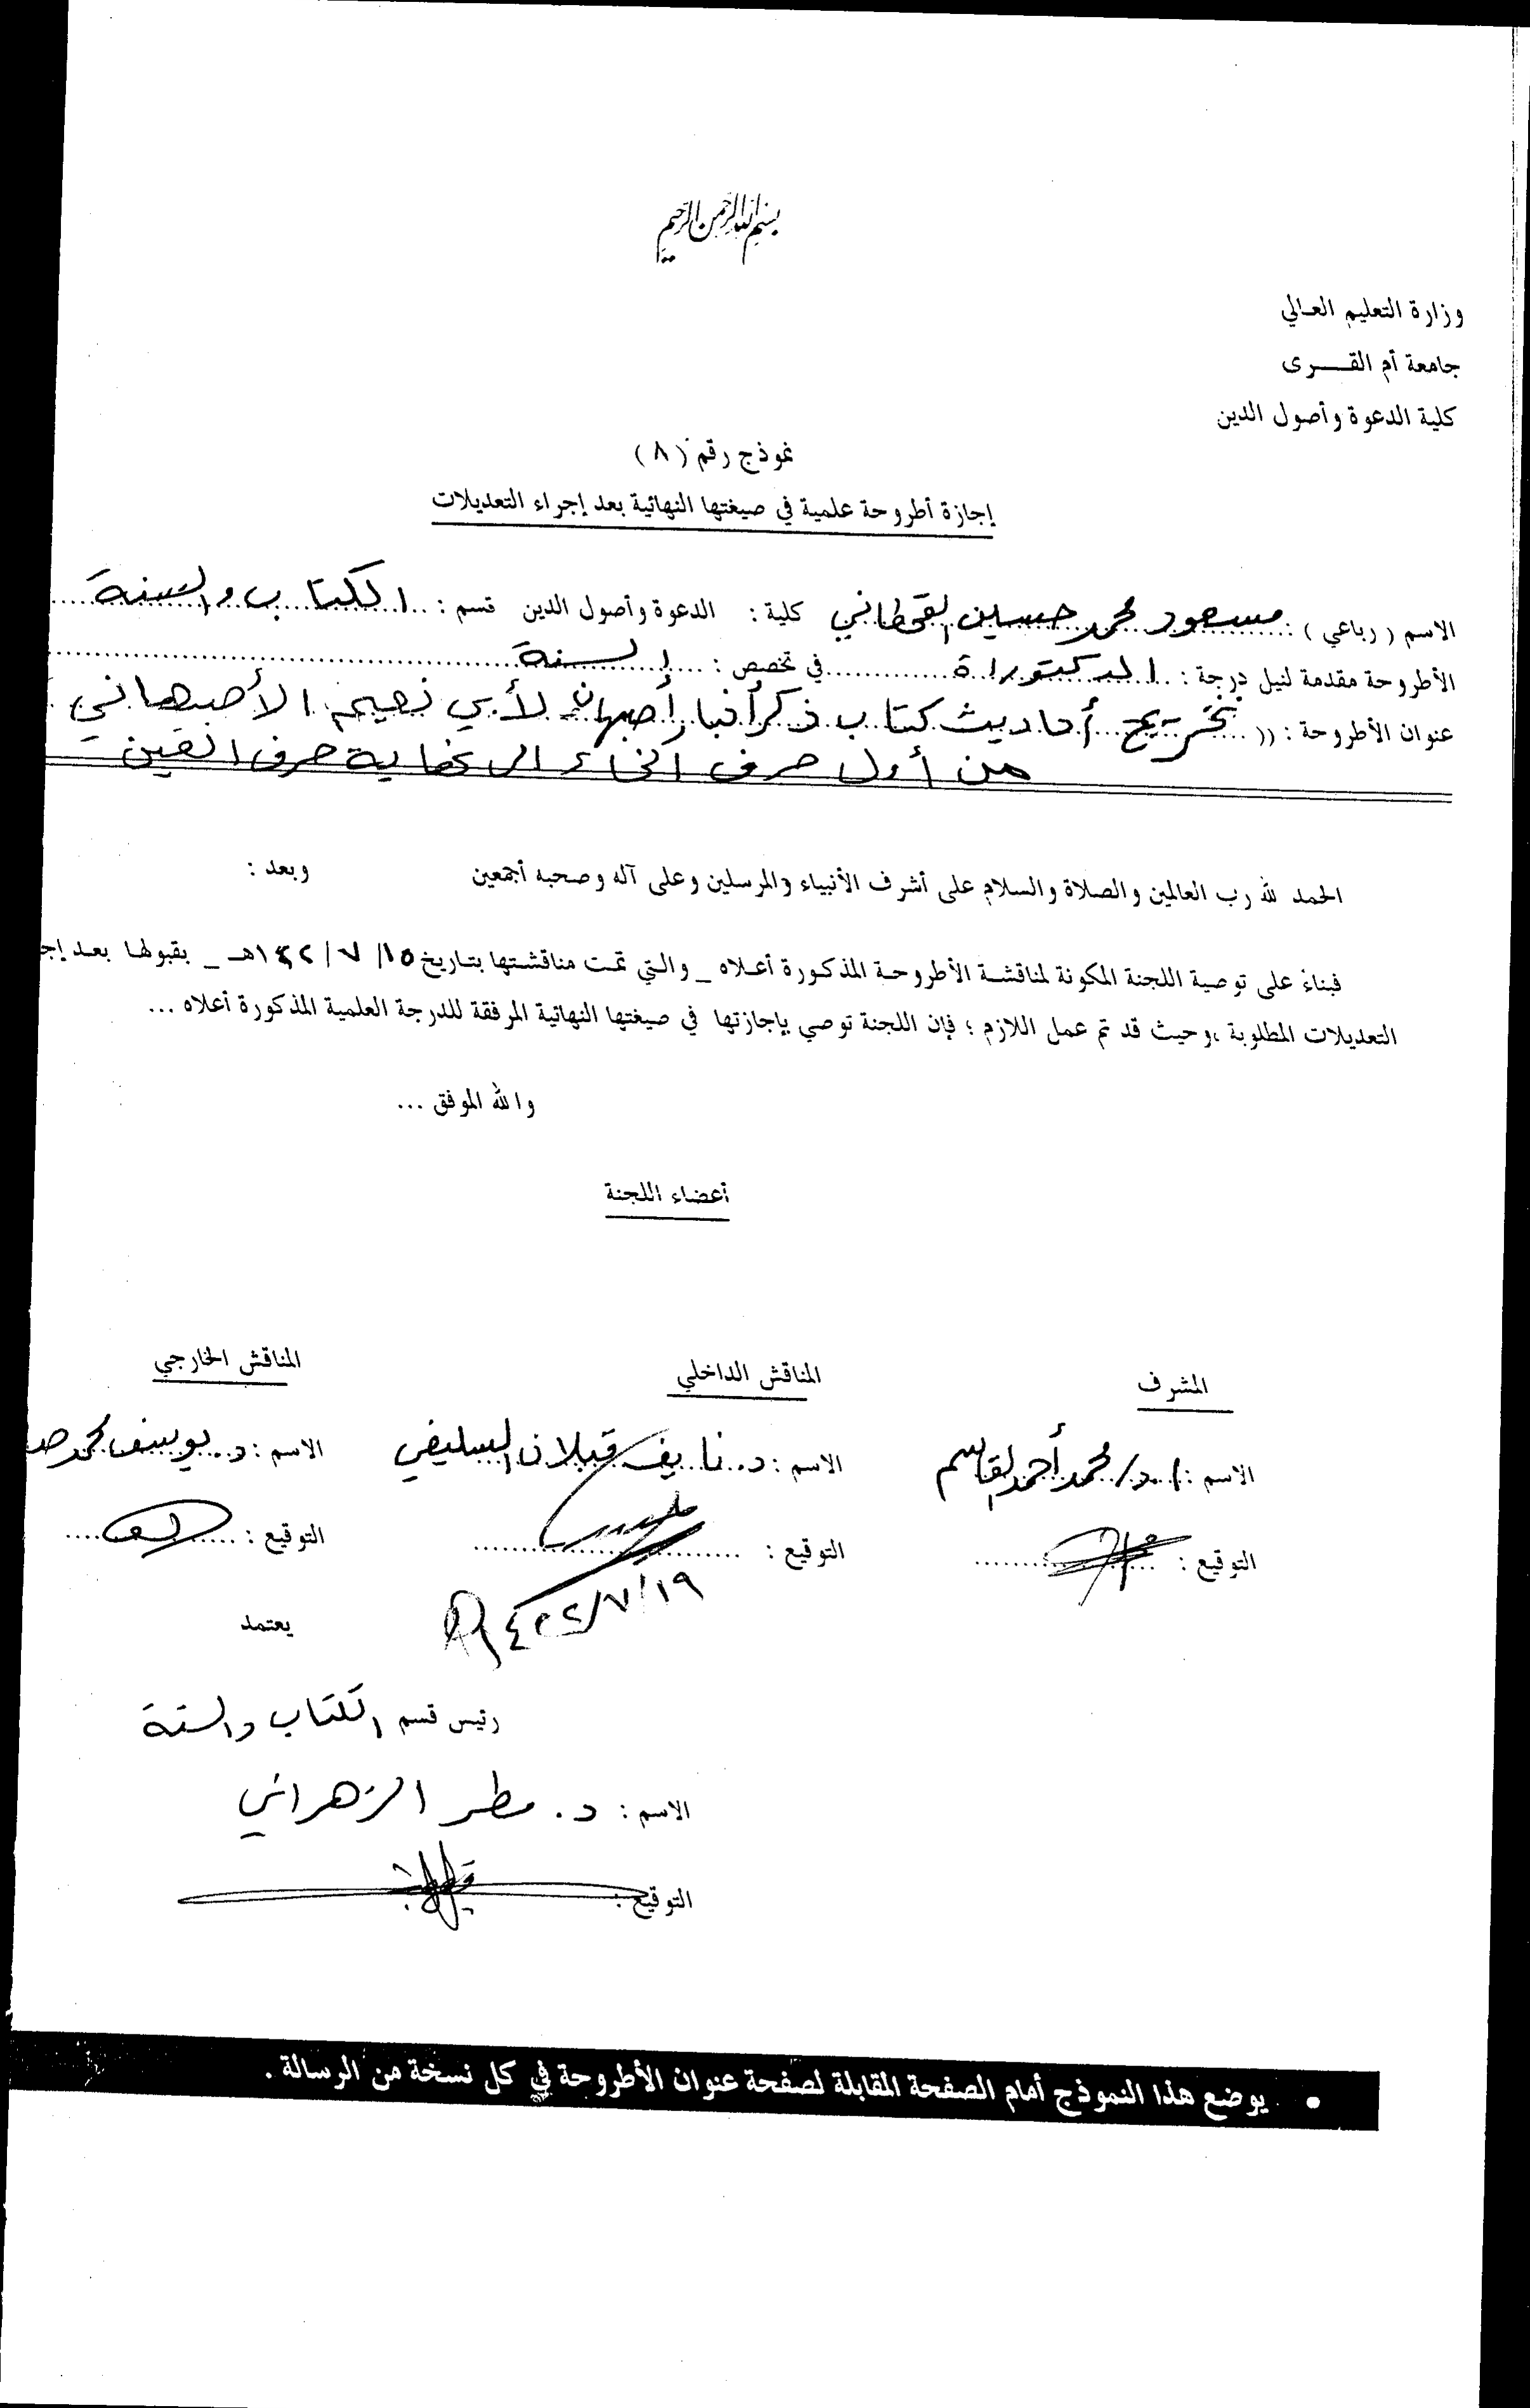 بسم الله الرحمن الرحيم
وزارة التعليم العالي
جامعة أم القــرى
كلية الدعوة وأصول الدين
نموذج رقم (٨)
إجازة أطروحة علمية في صيغتها النهائية بعد إجراء التعديلات
الاسم (رباعي) : مسعود محمد حسين القحطاني كلية : الدعوة وأصول الدين قسم : الكتاب والسنة
الأطروحة مقدمة لنيل درجة : الدكتوراة في تخصص : السنة
عنوان الأطروحة : (( تخريج أحاديث كتاب ذكر أخبار أصبهان لأبي نعيم الأصبهاني
من أول حرف الخاء الى نهاية حرف العين
الحمد لله رب العالمين والصلاة والسلام على أشرف الأنبياء والمرسلين وعلى آله وصحبه أجمعين وبعد :
فبناءً على توصية اللجنة المكونة لمناقشة الأطروحة المذكورة أعلاه _ والتي تمت مناقشتها بتاريخ ١٥/ ٧ /١٤٢٢هـ _ بقبولها بعد إجـ
التعديلات المطلوبة ،وحيث قد تم عمل اللازم ؛ فإن اللجنة توصي بإجازتها في صيغتها النهائية المرفقة للدرجة العلمية المذكورة أعلاه ...
والله الموفق ...
أعضاء اللجنة
المشرف المناقش الداخلي المناقش الخارجي
الاسم : ا.د/ محمد أحمد القاسم الاسم : د. نايف قبلان السليفي الاسم : د. يوسف محمد صد
التوقيع : التوقيع : التوقيع :
١٩/٧/١٤٢٢هـ
يعتمد
رئيس قسم الكتاب والسنة
الاسم : د. مطر الزهراني
التوقيع :
• يوضع هذا النموذج أمام الصفحة المقابلة لصفحة عنوان الأطروحة في كل نسخة من الرسالة .